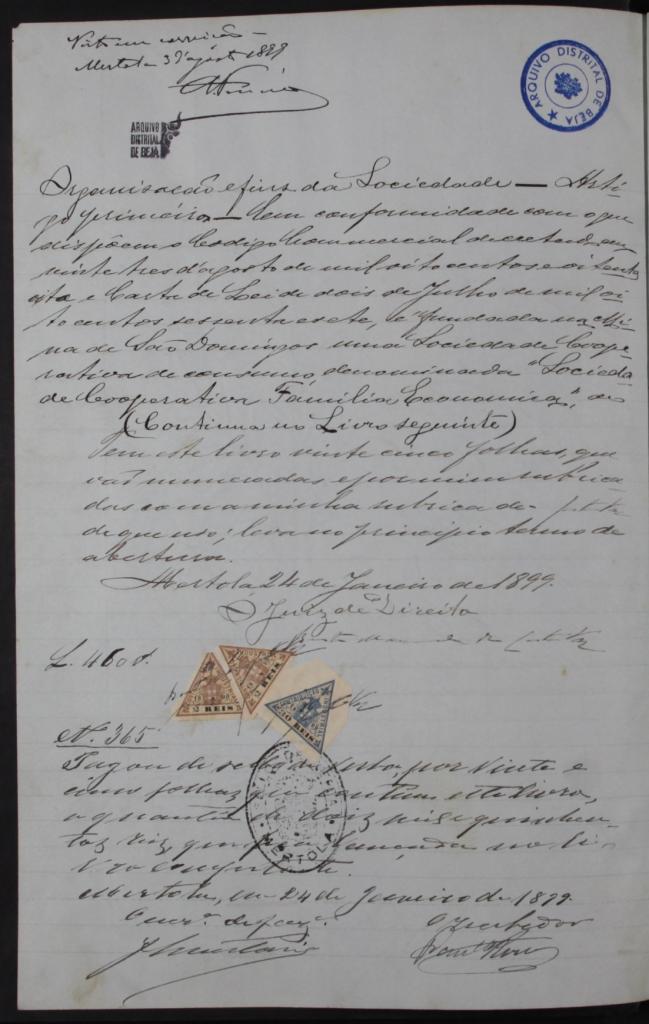 Visto em correição
Mertola 3 d'agosto 1899
ARQUIVO DISTRITAL DE BEJA
ARQUIVO
DISTRITAL
DE BEJA
Organisação e fins da Sociedade — Arti
go primeiro — Em conformidade com o que
dispõem o Codigo Commercial decretado em
vinte tres d'agosto de mil oito centos e oitenta
oito e Carta de Lei de dois de Julho de mil oi
to centos sessenta e sete, é fundada na Mi
na de São Domingos uma Sociedade Coope
rativa de consumo, denominada "Socieda
de Cooperativa Familia Economica",
(Continua no Livro seguinte)
Tem este livro vinte cinco folhas, que
vão numeradas e por mim rubrica
das com a minha rubrica de
de que uso; leva no principio termo de
abertura.
Mertola, 24 de Janeiro de 1899.
O Juiz de Direito
L. 460
2 REIS
2 REIS
REIS
Nº 365
Pagou de sello de verba, por vinte e
cinco folhas que contem este livro,
a quantia de dois mil e quinhen
tos reis, que fica lançada no li
vro competente.
MERTOLA
Mertola, 24 de Janeiro de 1899.
O recebedor